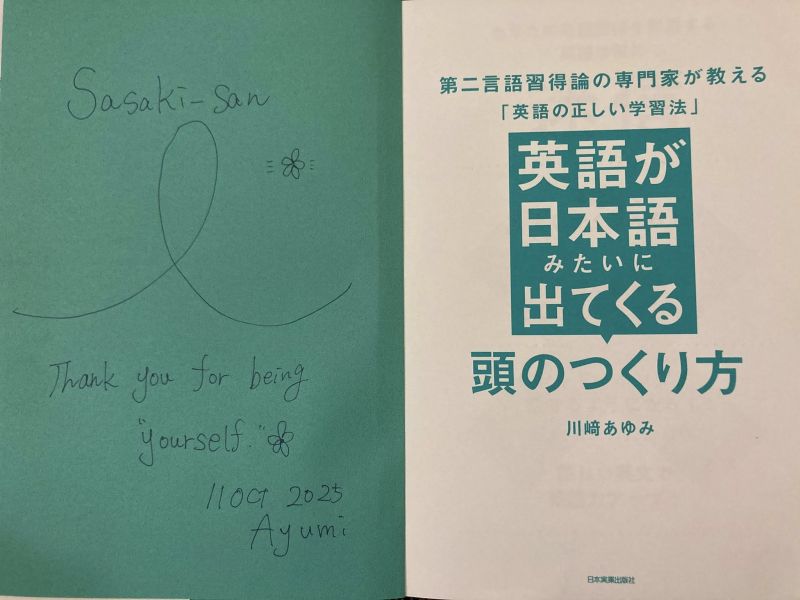 Sasaki-san
Thank you for being
"yourself."
11 Oct 2025
Ayumi
第二言語習得論の専門家が教える
「英語の正しい学習法」
英語が
日本語
みたいに
出てくる
頭のつくり方
川﨑あゆみ
日本実業出版社